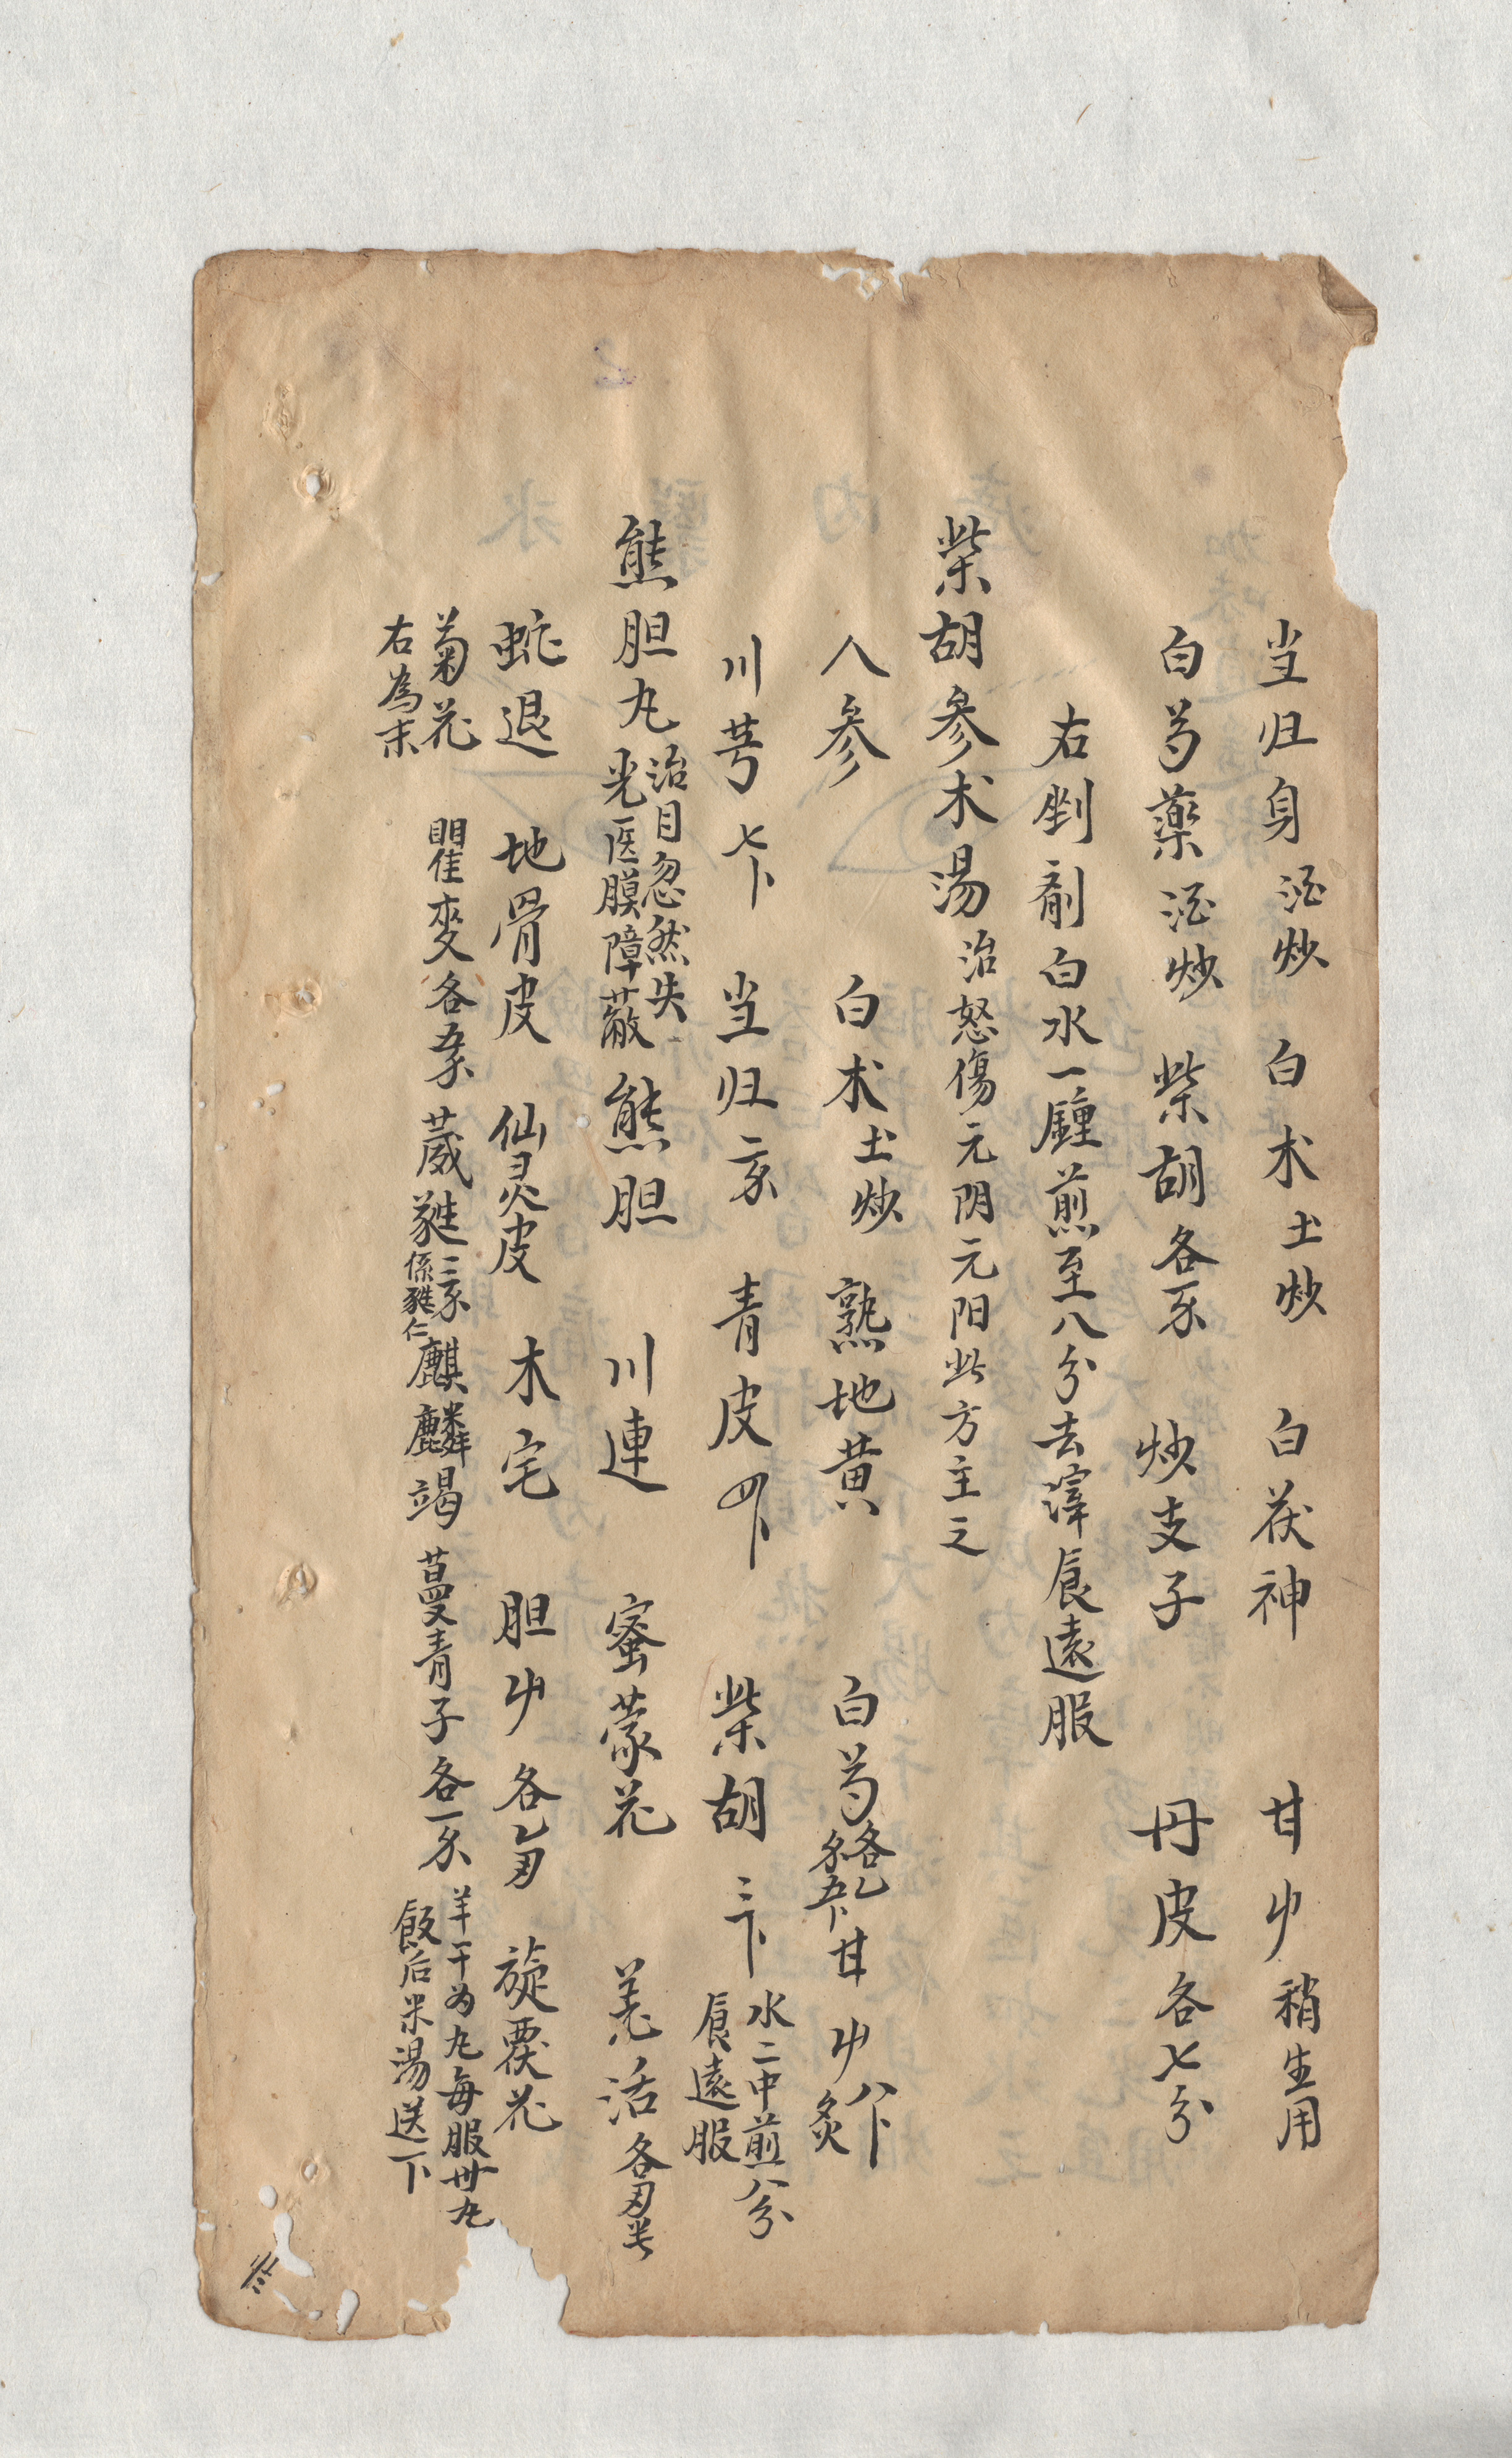 当归身酒炒 白术土炒 白茯神 甘艸稍生用
白芍藥酒炒 柴胡各 炒支子 丹皮各七分
右剉劑白水一鍾煎至八分去滓食遠服
柴胡參术湯治怒傷元阴元阳此方主之
人參 白术土炒 熟地黄 白芍各 甘艸炙
川芎 当归 青皮 柴胡
水二中煎八分
食遠服
熊胆丸
治目忽然失
光医膜障蔽
熊胆 川連 蜜蒙花 羌活各半
蛇退 地骨皮 仙灵皮 木宅 胆艸各 旋覆花
菊花 瞿麥各 葳蕤 係蕤仁 麒麟竭 蔓青子各一
羊干为丸每服卅丸
飯后米湯送下
右為末